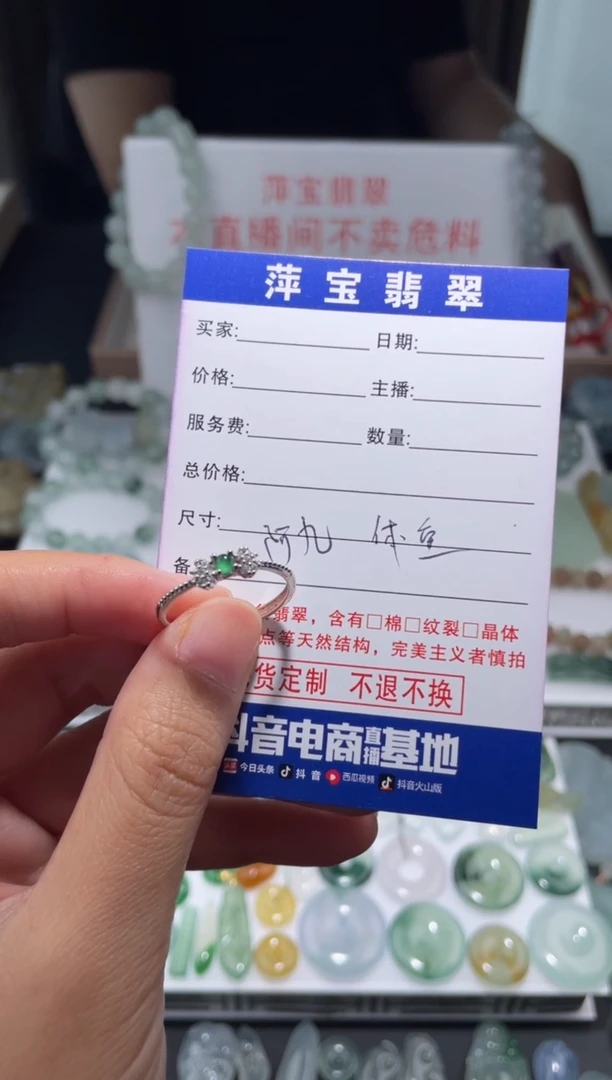 萍宝翡翠
直播间不卖危料
萍宝翡翠
买家: 日期:
价格: 主播:
服务费: 数量:
总价格:
尺寸: 阿九
备
翡翠，含有□棉□纹裂□晶体
点等天然结构，完美主义者慎拍
货定制 不退不换
抖音电商直播基地
今日头条 抖音 西瓜视频 抖音火山版